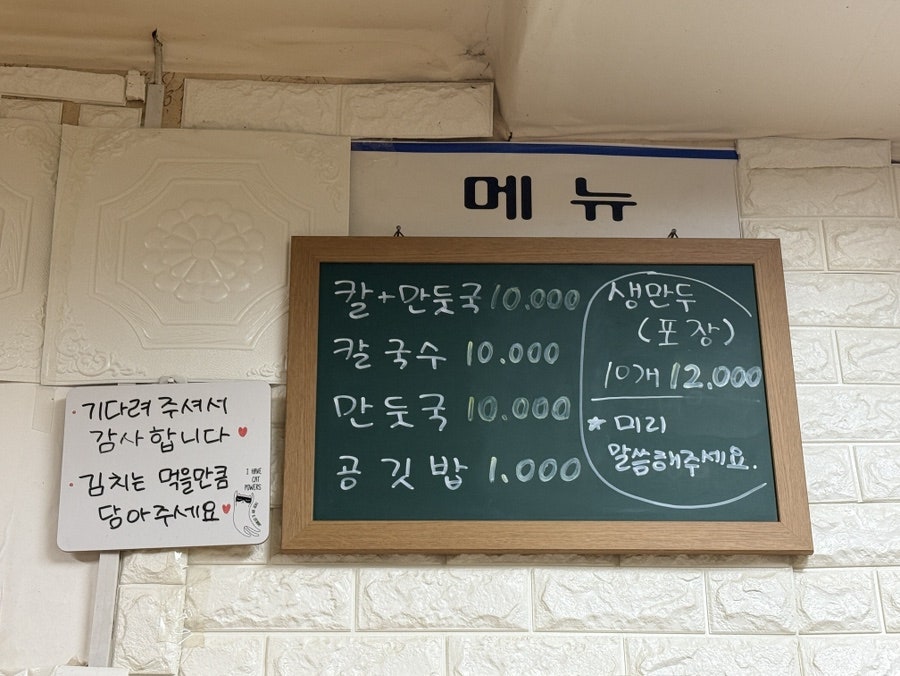 메뉴
칼+만둣국 10.000
칼국수 10.000
만둣국 10.000
공깃밥 1.000
생만두
(포장)
10개 12.000
★ 미리
말씀해주세요.
• 기다려 주셔서
감사합니다 ♥
• 김치는 먹을만큼
담아주세요 ♥
I HAVE
CAT
POWERS